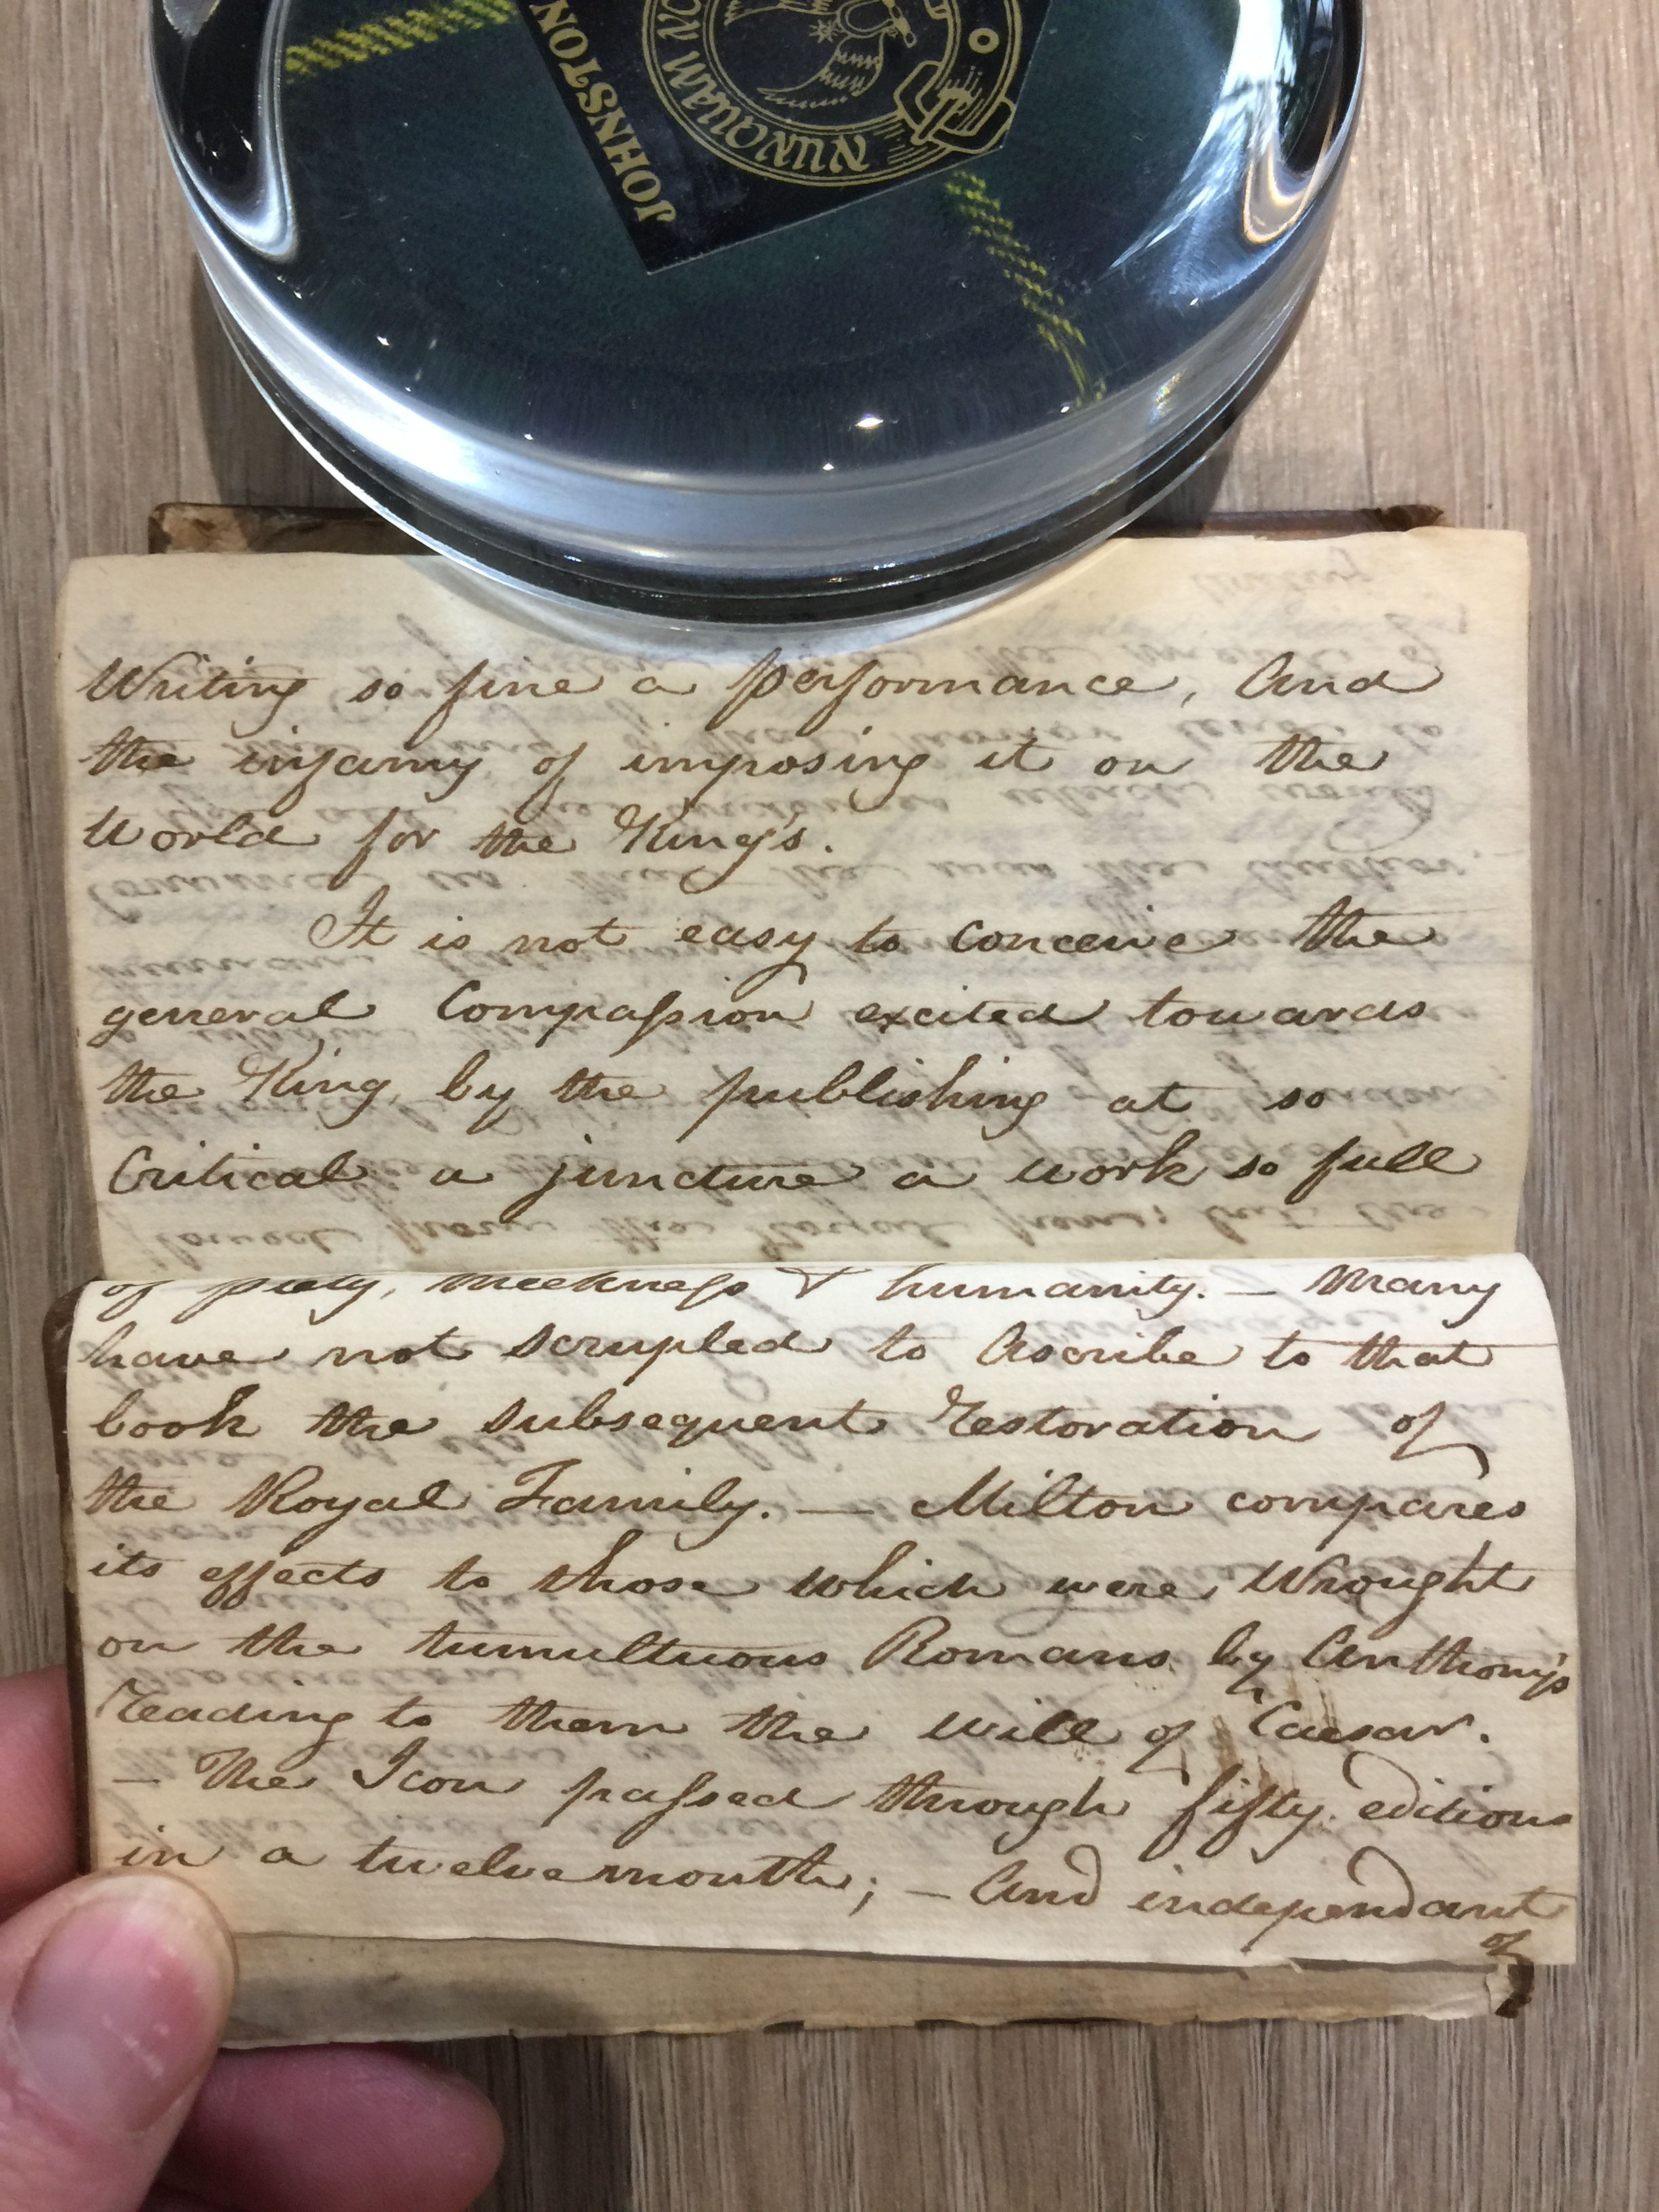 JOHNSTON
NUNQUAM NO
Writing so fine a performance, And
the infamy of imposing it on the
World for the King's.
It is not easy to conceive the
general Compaſsion excited towards
the King, by the publishing at so
Critical a juncture a work so full
of piety, meekneſs & humanity. — Many
have not scrupled to Ascribe to that
book the subsequent restoration of
the Royal Family. — Milton compares
its effects to those which were Wrought
on the tumultuous Romans by Anthony's
reading to them the will of Caesar.
— The Icon paſsed through fifty editions
in a twelvemonth; — And independant
of